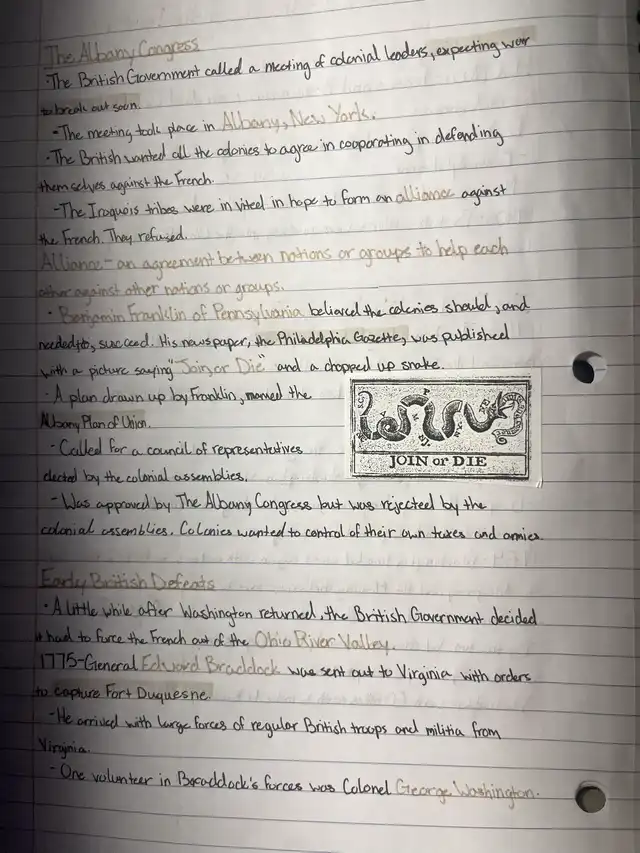 The Albany Congress
·The British Government called a meeting of colonial leaders, expecting war
to break out soon.
-The meeting took place in Albany, New York.
·The British wanted all the colonies to agree in cooperating in defending
themselves against the French.
-The Iroquois tribes were in vited in hope to form an alliance against
the French. They refused.
Alliance- an agreement between nations or groups to help each
other against other nations or groups.
· Benjamin Franklin of Pennsylvania believed the colonies should, and
needed to, succeed. His newspaper, the Philadelphia Gazette, was published
with a picture saying "Join or Die" and a chopped up snake.
· A plan drawn up by Franklin, named the
Albany Plan of Union.
- Called for a council of representatives
elected by the colonial assemblies.
- Was approved by The Albany Congress but was rejected by the
colonial assemblies. Colonies wanted to control of their own taxes and armies.
JOIN or DIE
Early British Defeats
· A little while after Washington returned, the British Government decided
it had to force the French out of the Ohio River Valley.
1775-General Edward Braddock was sent out to Virginia with orders
to capture Fort Duquesne.
-He arrived with large forces of regular British troops and militia from
Virginia.
- One volunteer in Bracddock's forces was Colonel George Washington.